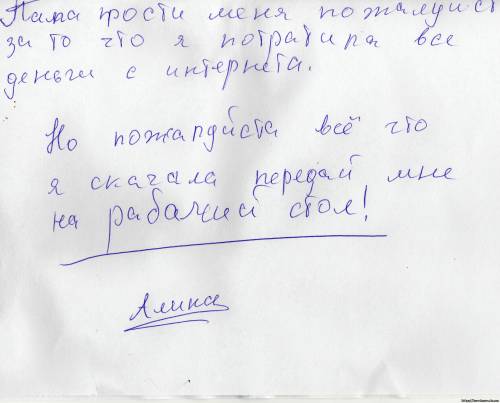 Папа прости меня пожалуйст
за то что я потратила все
деньги с интернета.
Но пожалуйста всё что
я скачала передай мне
на рабачий стол!
Алина